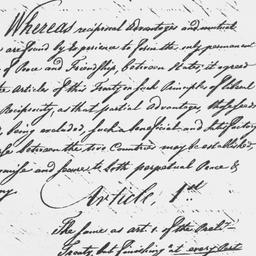 Whereas reciprocal Advantages and mutual
are found by Experience to form the only permanent
of Peace and Friendship, between States, it agreed
the Articles of this Treaty on such Principles of liberal
Reciprocity, as that partial advantages, those seeds
being excluded, such a beneficial and satisfactory
between the two Countries may be established
promise and secure to both perpetual Peace &
Article, 1st
The same as art: 1. of the
Treaty, but finishing at every Part